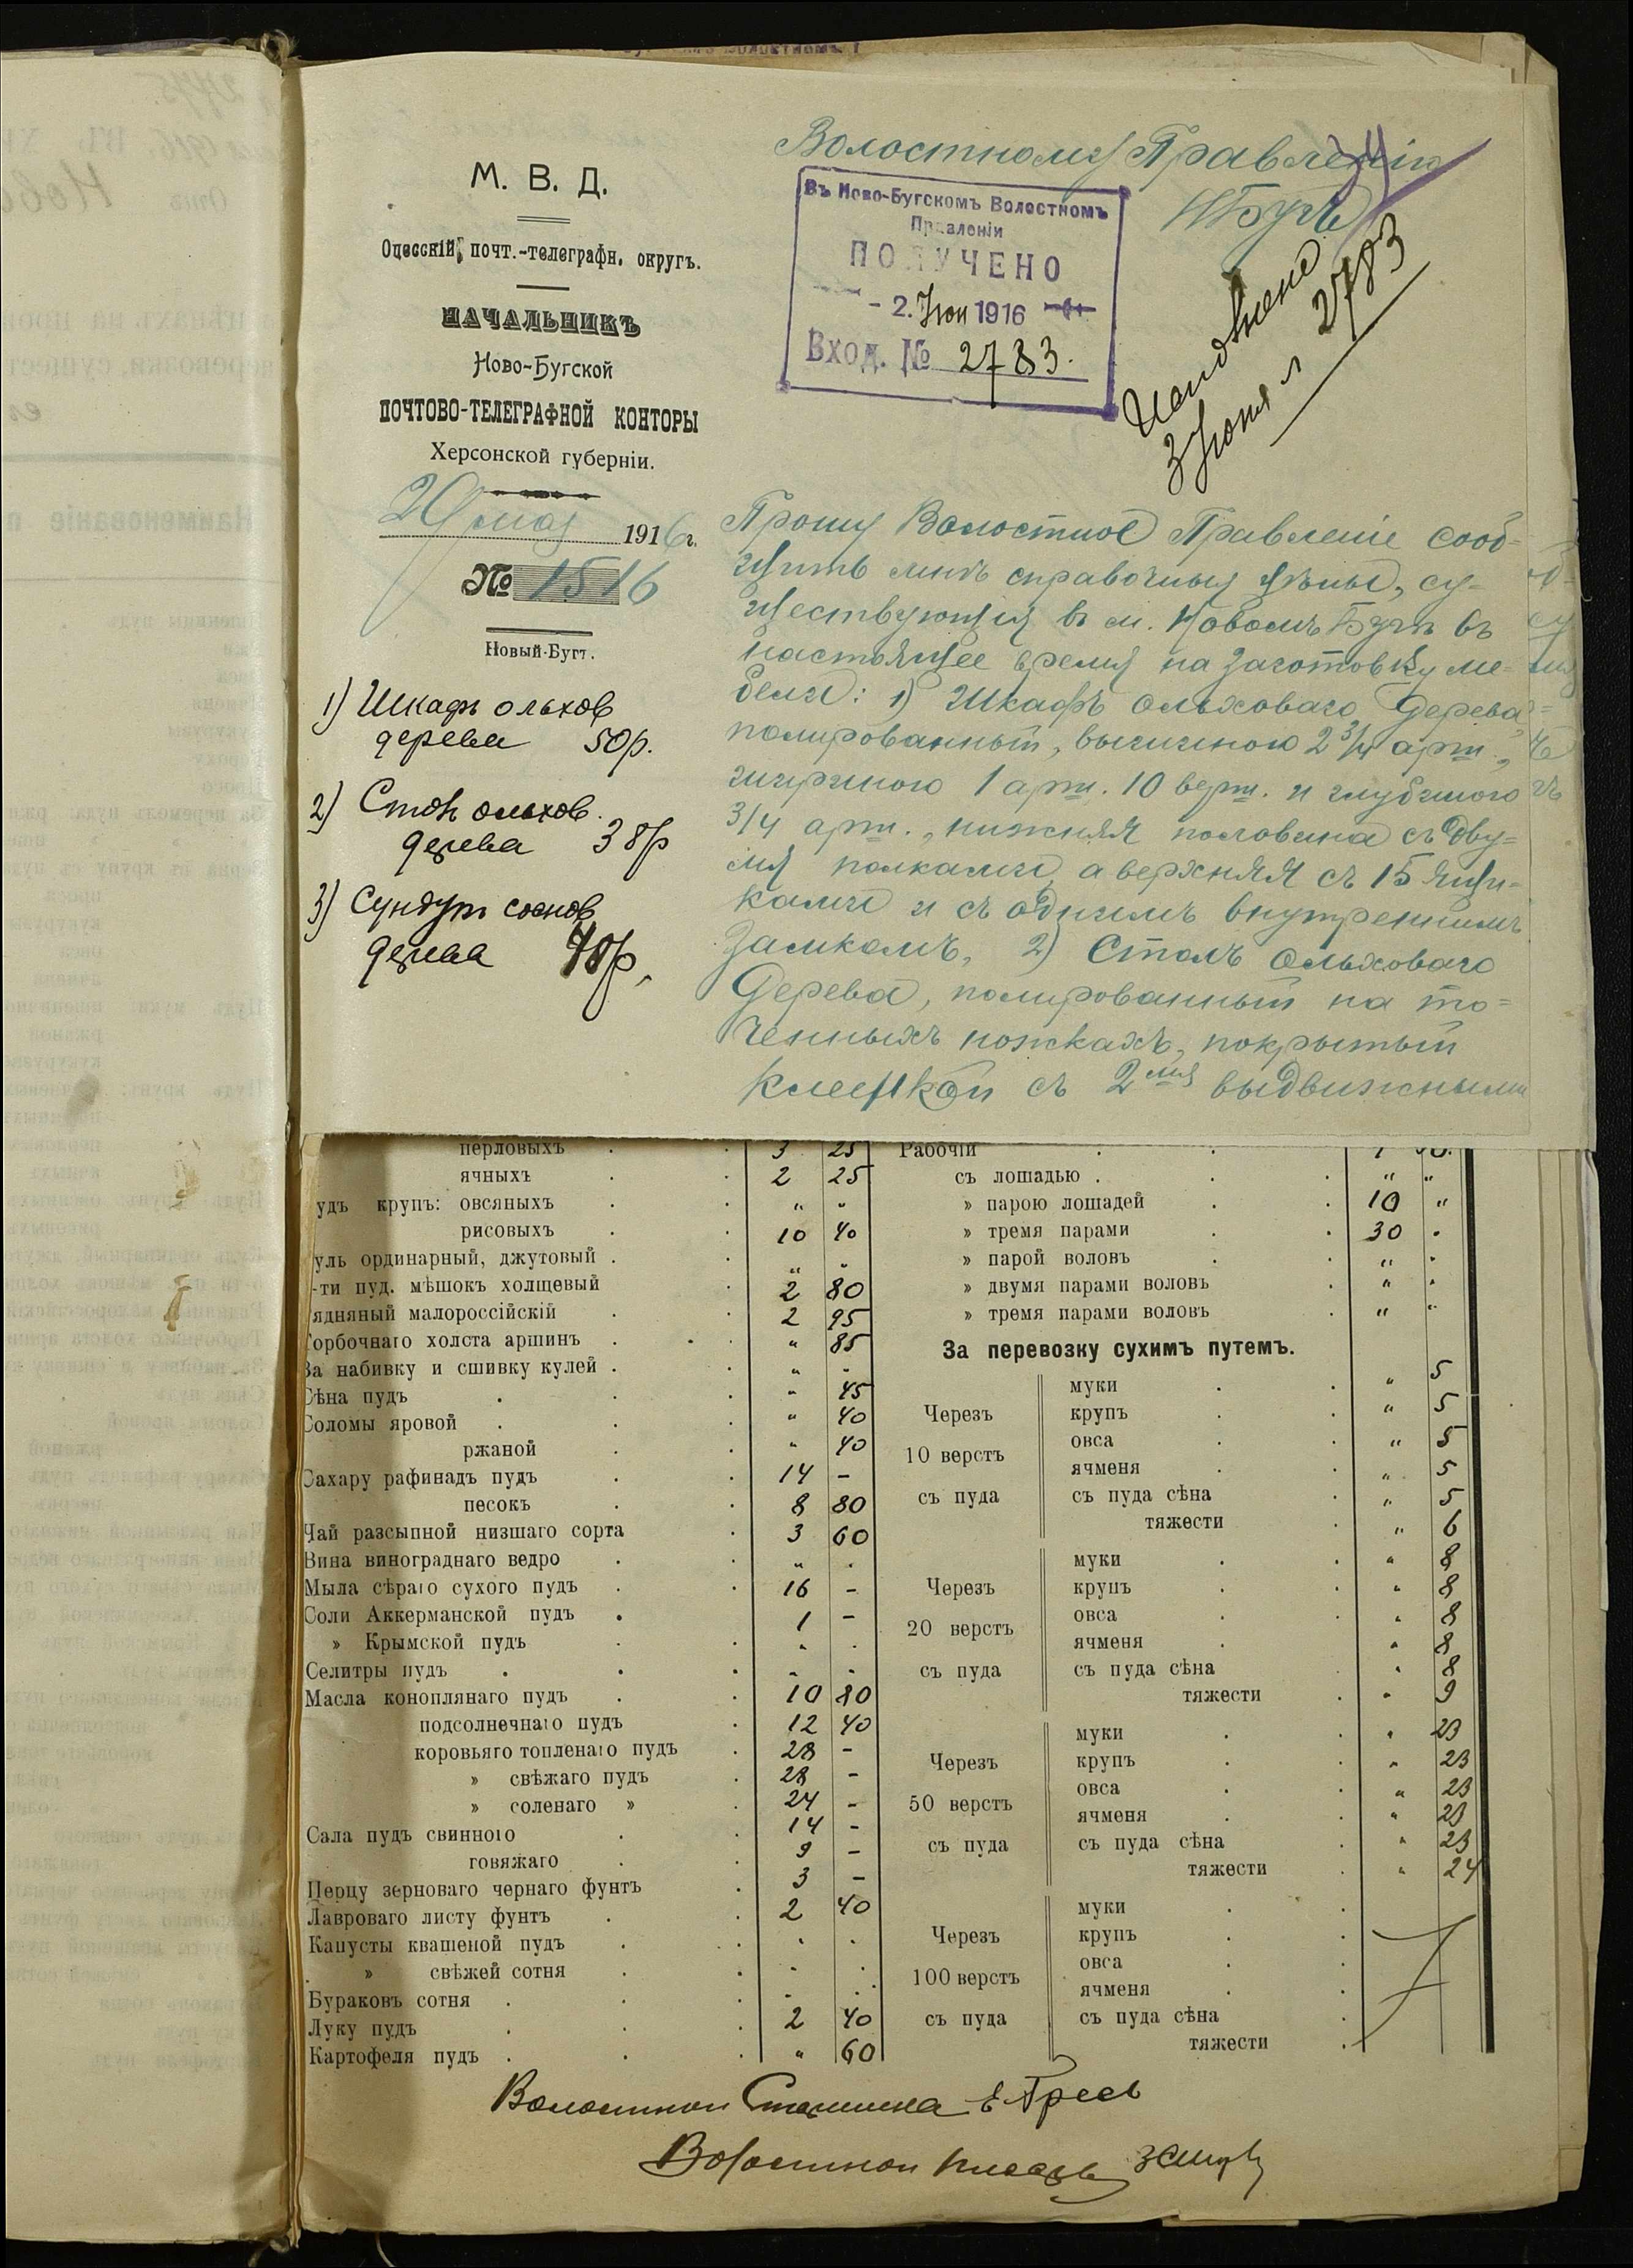 М. В. Д.
Одесскій почт.-телеграфн. округъ.
НАЧАЛЬНИКЪ
Ново-Бугской
ПОЧТОВО-ТЕЛЕГРАФНОЙ КОНТОРЫ
Херсонской губерніи.
29 мая 1916 г.
№ 1516
Новый-Бугъ.
Волостному Правленію
Н Бугъ
Въ Ново-Бугскомъ Волостномъ
Правленіи
ПОЛУЧЕНО
- 2. Іюн 1916
Вход. № 2783.
3 Іюня 2783
1) Шкафъ ольхов
дерева 50р.
2) Столъ ольхов.
дерева 38р
3) Сундукъ соснов
дерева 40р.
Прошу Волостное Правленіе сооб-
щить мнѣ справочныя цѣны, су-
ществующія въ м. Новомъ Бугѣ въ
настоящее время на заготовку ме-
бели: 1) Шкафъ ольховаго дерева,
полированный, вышиною 2 3/4 арш.,
шириною 1 арш. 10 верш. и глубиною
3/4 арш., нижняя половина съ дву-
мя полками, а верхняя съ 15 ящи-
ками и съ однимъ внутреннимъ
замкомъ, 2) Столъ ольховаго
дерева, полированный на то-
ченныхъ ножкахъ, покрытый
клеенкой съ 2мя выдвижными
перловыхъ 3 25
ячныхъ 2 25
удъ крупъ: овсяныхъ " "
рисовыхъ 10 40
уль ординарный, джутовый . " "
-ти пуд. мѣшокъ холщевый 2 80
ядняный малороссійскій 2 95
орбочнаго холста аршинъ " 85
За набивку и сшивку кулей . " "
Сѣна пудъ " 45
Соломы яровой " 40
ржаной " 40
Сахару рафинадъ пудъ 14 -
песокъ 8 80
Чай разсыпной низшаго сорта 3 60
Вина винограднаго ведро " .
Мыла сѣраго сухого пудъ 16 -
Соли Аккерманской пудъ 1 -
» Крымской пудъ " .
Селитры пудъ " .
Масла коноплянаго пудъ 10 80
подсолнечнаго пудъ 12 40
коровьяго топленаго пудъ 28 -
» свѣжаго пудъ 28 -
» соленаго » 24 -
Сала пудъ свинного 14 -
говяжаго 9 -
Перцу зерноваго чернаго фунтъ 3 -
Лавроваго листу фунтъ 2 40
Капусты квашеной пудъ . .
» свѣжей сотня . .
Бураковъ сотня . .
Луку пудъ 2 40
Картофеля пудъ " 60
Рабочій
съ лошадью . " "
» парою лошадей 10 "
» тремя парами 30 .
» парой воловъ " .
» двумя парами воловъ " .
» тремя парами воловъ " "
За перевозку сухимъ путемъ.
Черезъ
10 верстъ
съ пуда
муки " 5
крупъ " 5
овса " 5
ячменя " 5
съ пуда сѣна " 5
тяжести " 6
Черезъ
20 верстъ
съ пуда
муки " 8
крупъ " 8
овса " 8
ячменя " 8
съ пуда сѣна " 8
тяжести " 9
Черезъ
50 верстъ
съ пуда
муки " 23
крупъ " 23
овса " 23
ячменя " 23
съ пуда сѣна " 23
тяжести " 24
Черезъ
100 верстъ
съ пуда
муки
крупъ
овса
ячменя
съ пуда сѣна
тяжести
Волостной Старшина
Волостной Писарь